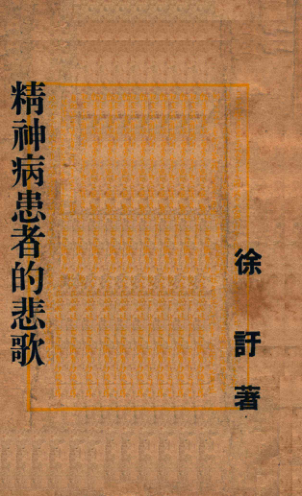 精神病患者的悲歌
徐訏著